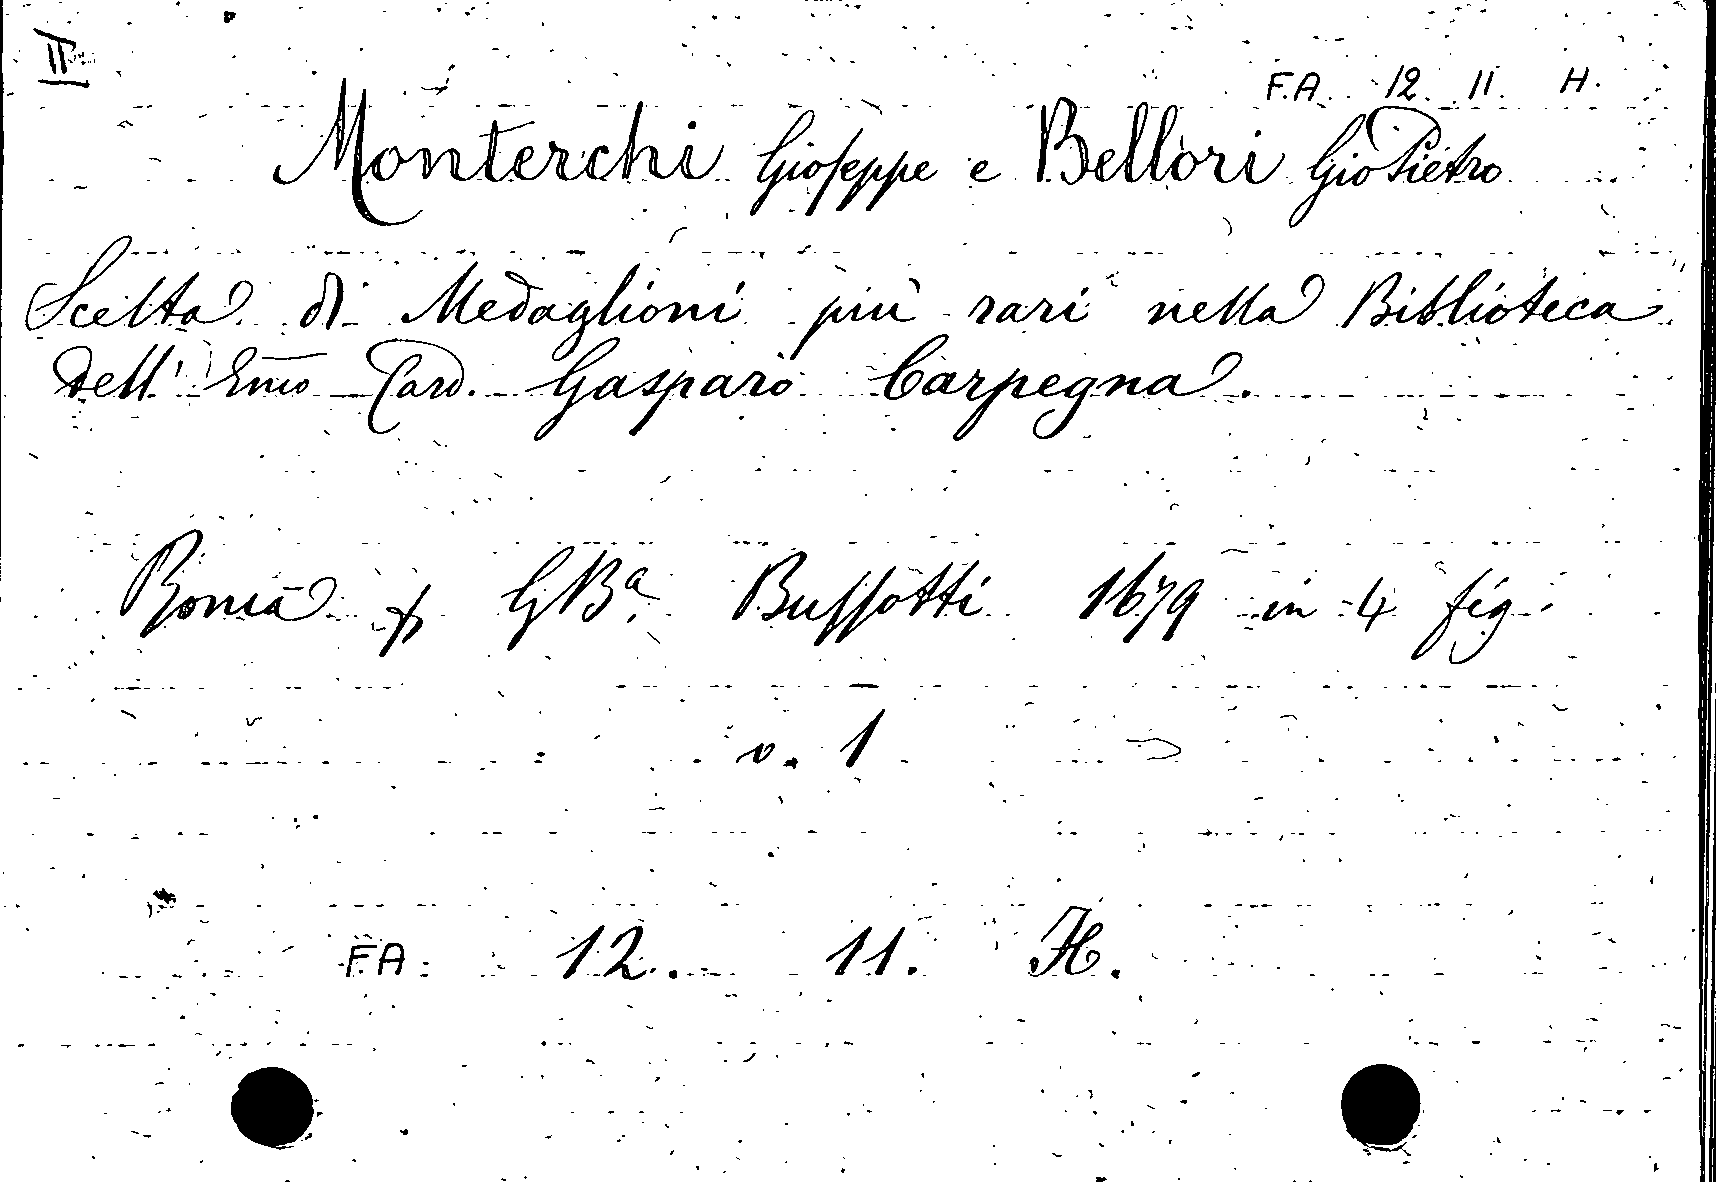 II
F.A. 12. 11. H.
Monterchi Gioseppe e Bellori GioPietro
Scelta di Medaglioni più rari nella Biblioteca
dell' Emo Card. Gasparo Carpegna.
Roma p GBa. Bussotti 1679 in 4 fig.
v. 1
F.A. 12. 11. H.